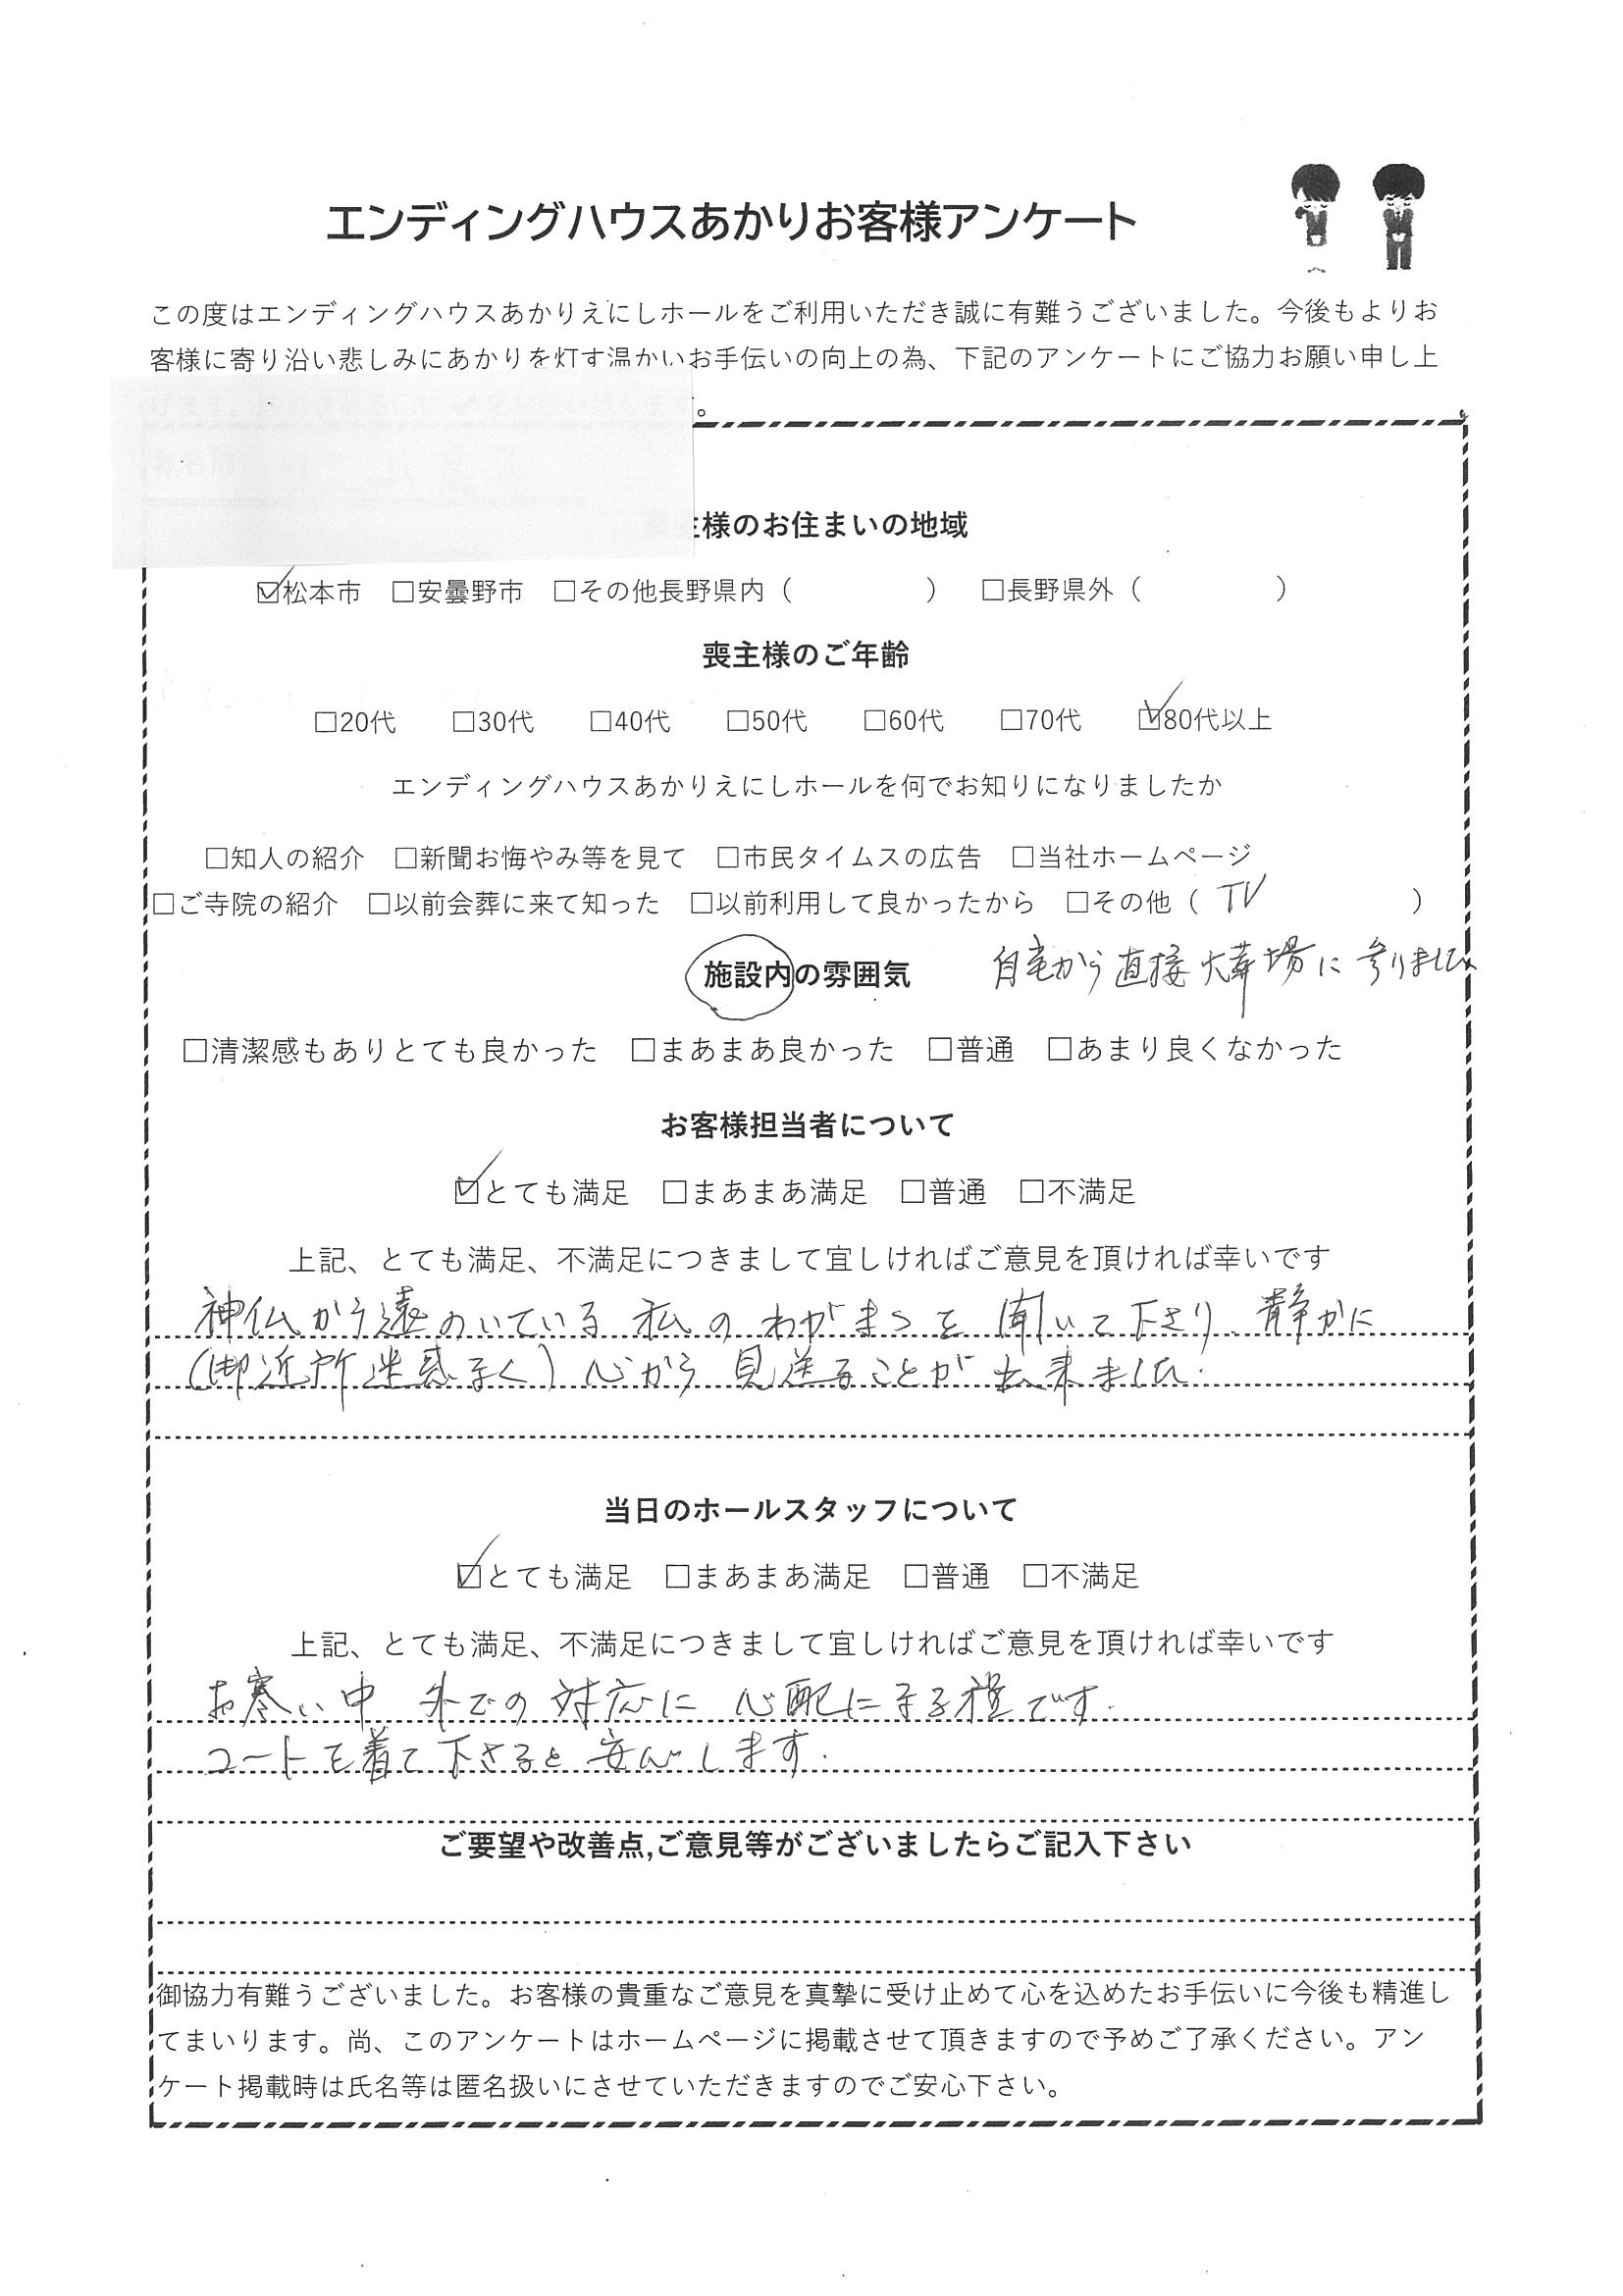 エンディングハウスあかりお客様アンケート
この度はエンディングハウスあかりえにしホールをご利用いただき誠に有難うございました。今後もよりお
客様に寄り沿い悲しみにあかりを灯す温かいお手伝いの向上の為、下記のアンケートにご協力お願い申し上
。
主様のお住まいの地域
☑松本市 □安曇野市 □その他長野県内（ ） □長野県外（ ）
喪主様のご年齢
□20代 □30代 □40代 □50代 □60代 □70代 ☑80代以上
エンディングハウスあかりえにしホールを何でお知りになりましたか
□知人の紹介 □新聞お悔やみ等を見て □市民タイムスの広告 □当社ホームページ
□ご寺院の紹介 □以前会葬に来て知った □以前利用して良かったから □その他（ TV ）
施設内の雰囲気 自宅から直接火葬場に参りました
□清潔感もありとても良かった □まあまあ良かった □普通 □あまり良くなかった
お客様担当者について
☑とても満足 □まあまあ満足 □普通 □不満足
上記、とても満足、不満足につきまして宜しければご意見を頂ければ幸いです
神仏から遠のいている私のわがまゝを聞いて下さり、静かに
(御近所迷惑なく)心から見送ることが出来ました.
当日のホールスタッフについて
☑とても満足 □まあまあ満足 □普通 □不満足
上記、とても満足、不満足につきまして宜しければご意見を頂ければ幸いです
お寒い中 外での対応に心配になる程です.
コートを着て下さると安心します.
ご要望や改善点,ご意見等がございましたらご記入下さい
御協力有難うございました。お客様の貴重なご意見を真摯に受け止めて心を込めたお手伝いに今後も精進し
てまいります。尚、このアンケートはホームページに掲載させて頂きますので予めご了承ください。アン
ケート掲載時は氏名等は匿名扱いにさせていただきますのでご安心下さい。